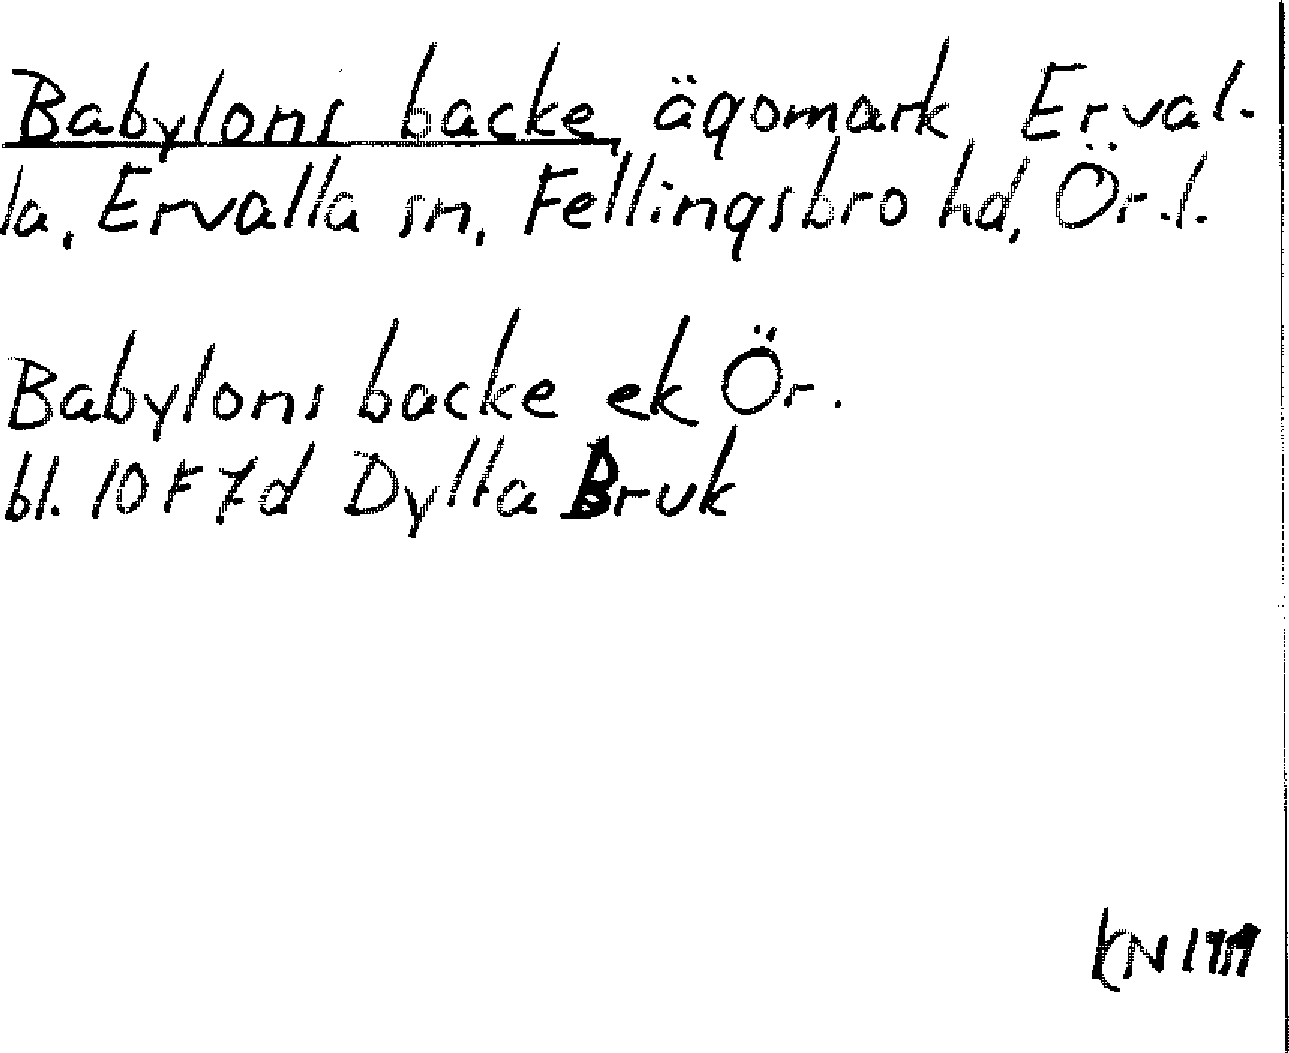 Babylons backe, ägomark, Erval-
la, Ervalla sn, Fellingsbro hd, Ör. l.
Babylons backe ek Ör.
bl. 10F 7d Dylta Bruk